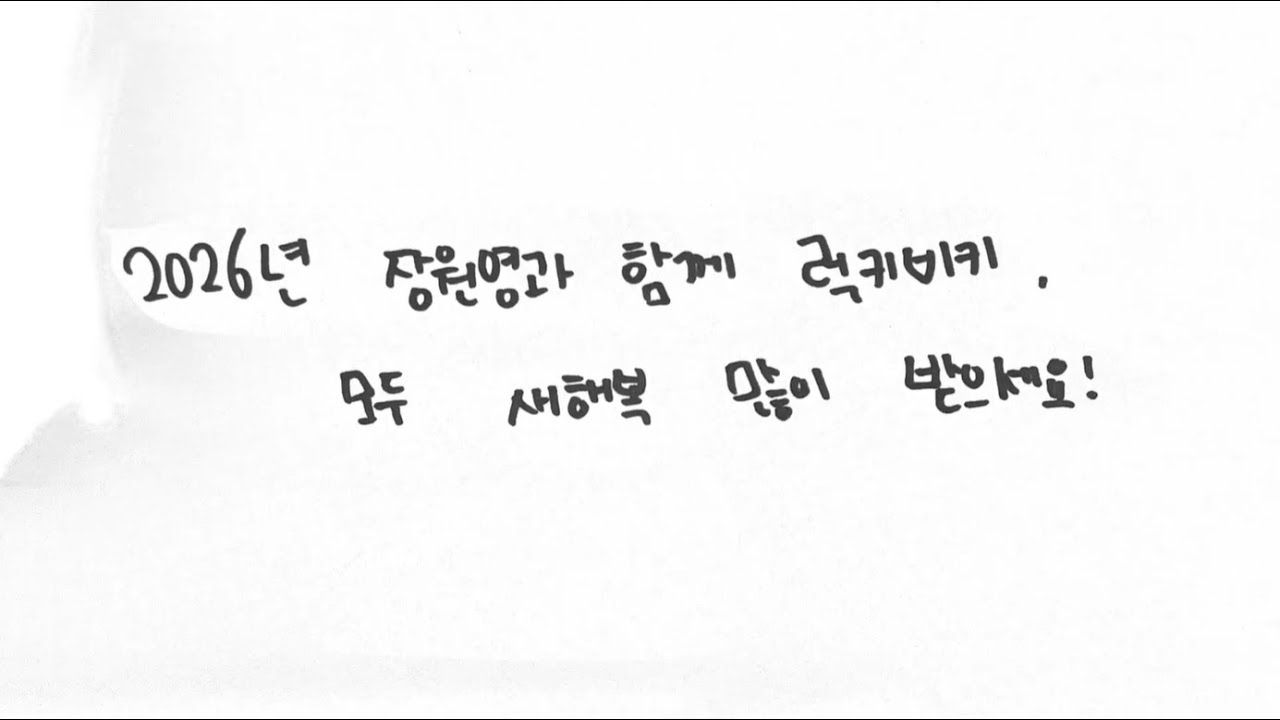 2026년 장원영과 함께 럭키비키.
모두 새해복 많이 받으세요!